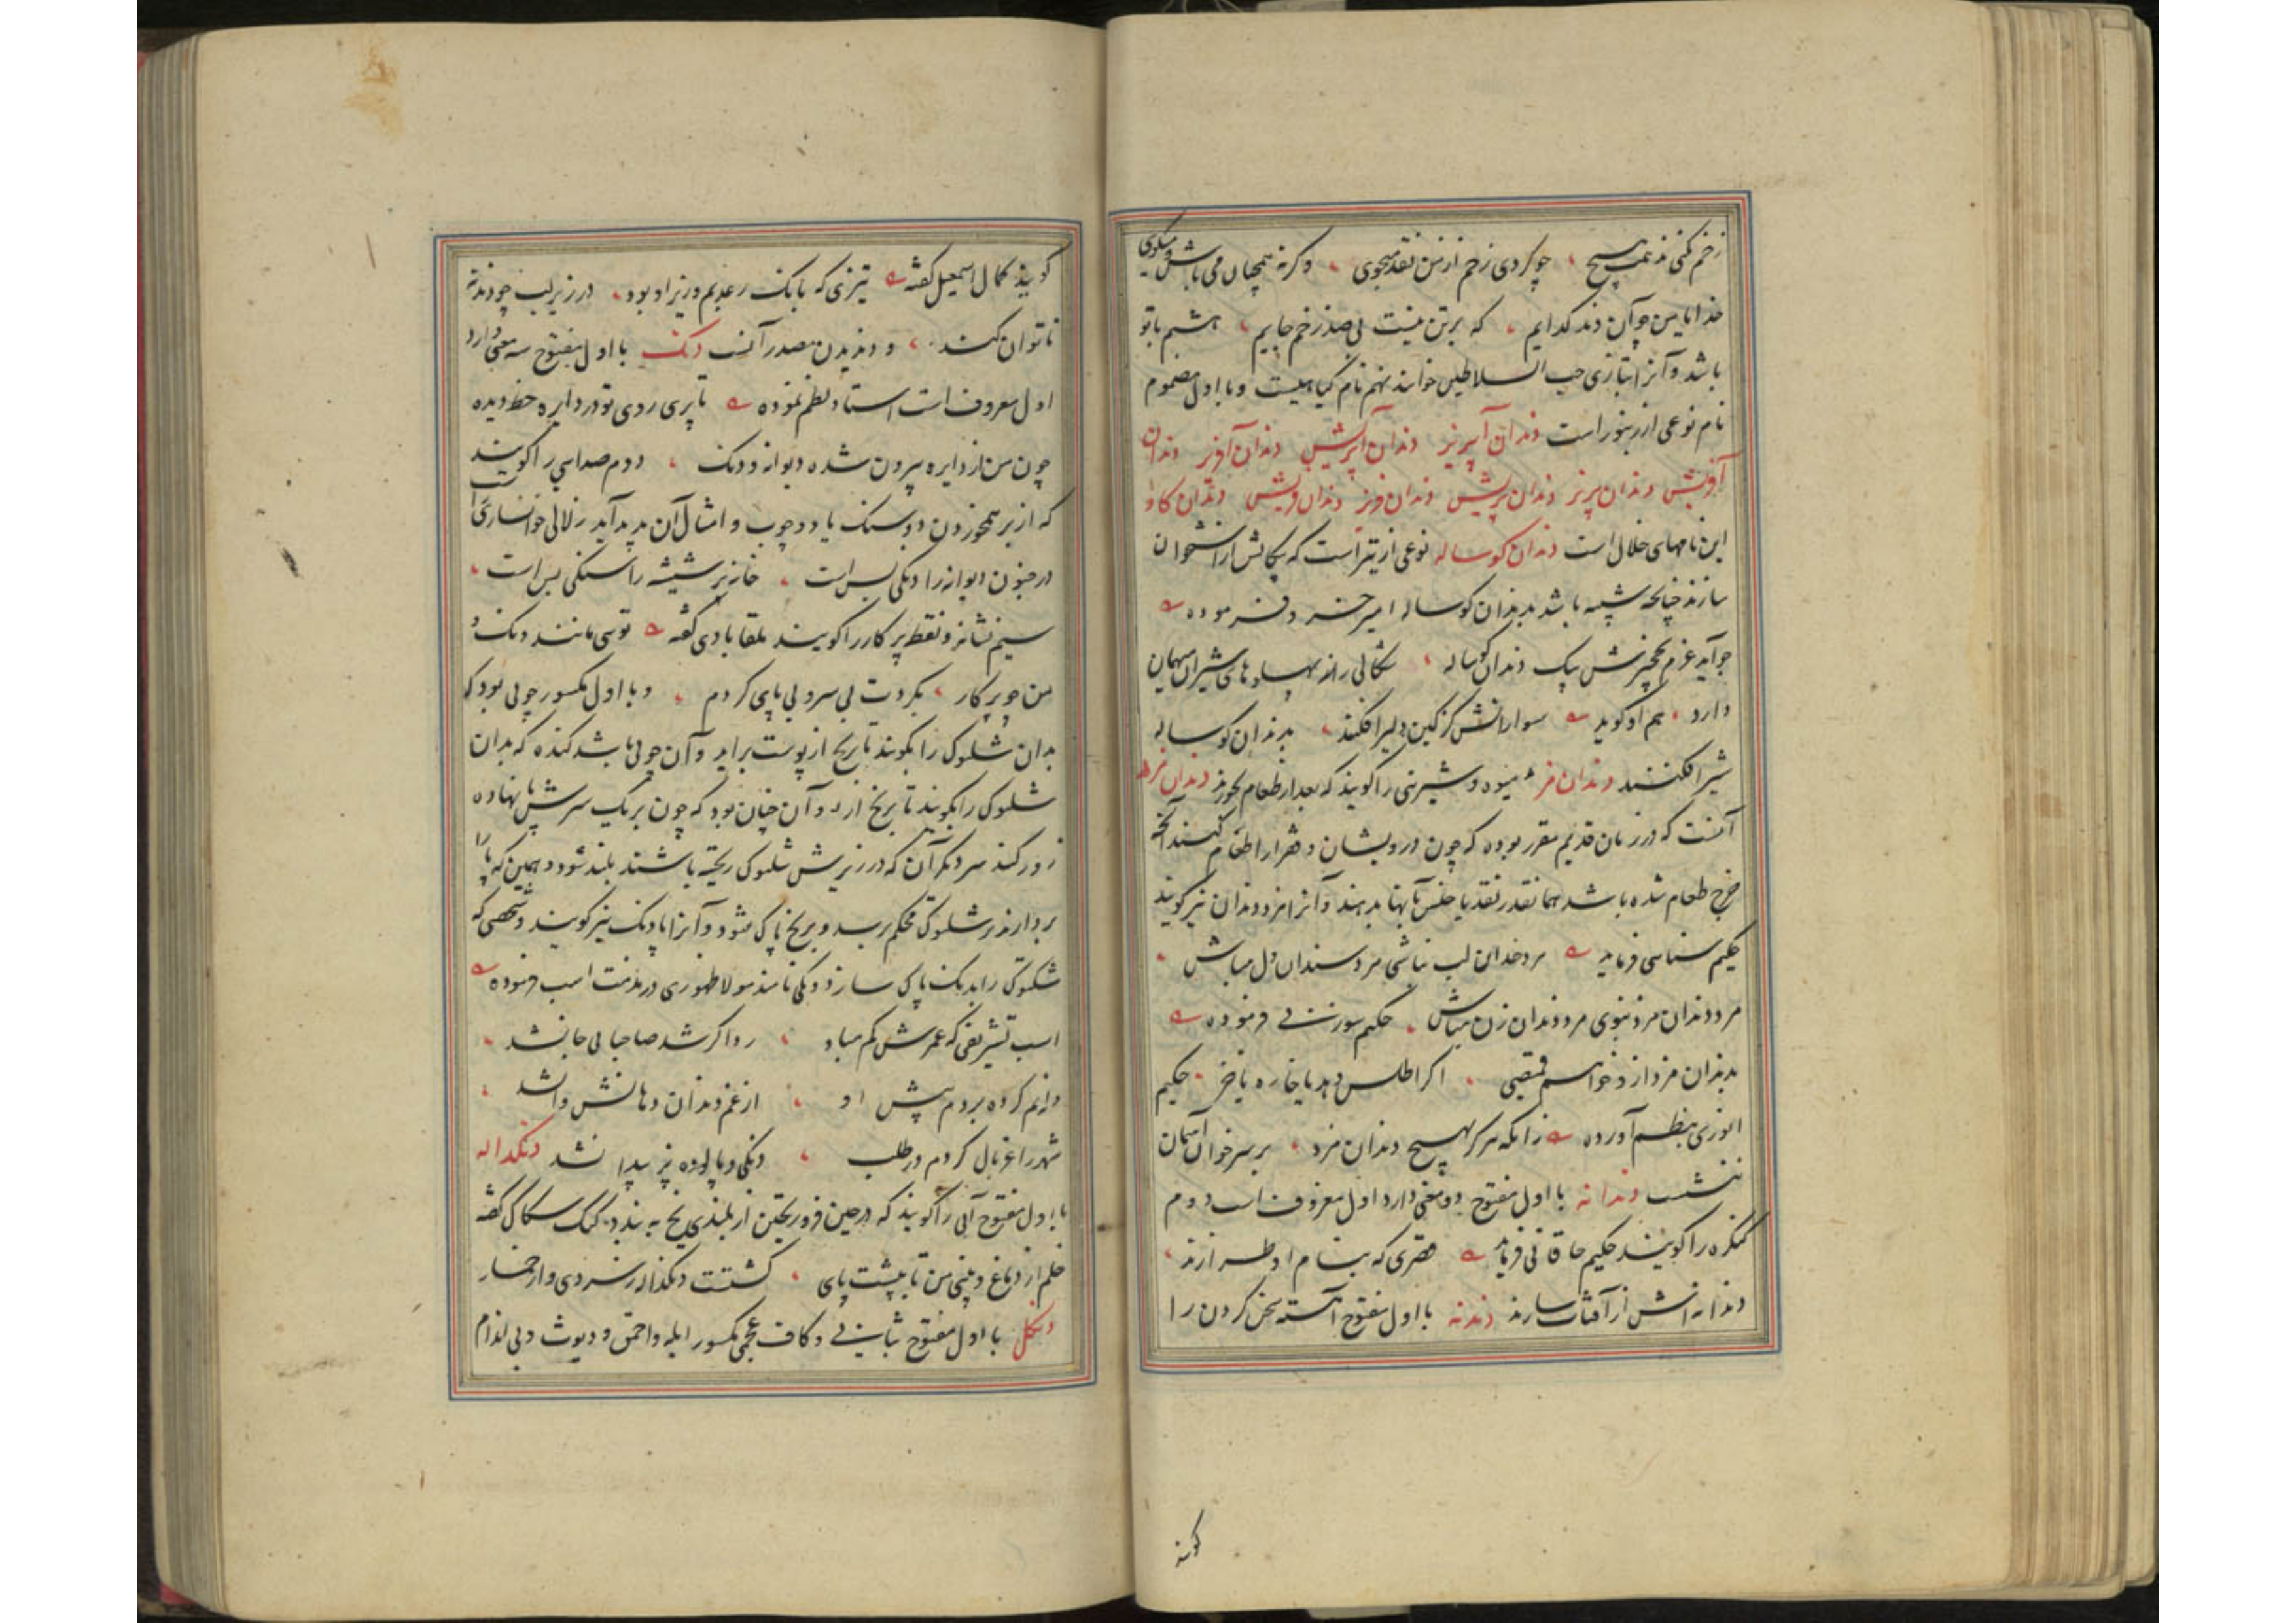 زخم کنی ند همت هیچ ، چو کردی زخم از من نقد میجوی ، وکرنه همچنان می باش و میکوی
خدایا من چو آن دند کدایم ، که بر تن نیست بی صد زخم جایم ، هشتم باتو
باشد و آنرا بتازی حب السلاطین خوانند نهم نام کیاهیست و با اول مضموم
نام نوعی از زنبور است دندان آپریز دندان آپریش دندان آفریز دندان
آفریش دندان پریز دندان پریش دندان فریز دندان فریش دندان کاو
این نامهای خلال است دندان کوساله نوعی از تیر است که پیکانش از استخوان
سازند چنانچه شبیه باشد بدندان کوساله امیر خسرو فرموده
چو آید عزم نخچیرش بیک دندان کوساله ، شکالی را نه پهلوهای شیران میهمان
دارد ، هم او کوید سوارانش کزکین دلیر افکنند ، بدندان کوساله
شیر افکنند دندان مز میوه و شیرینی را کویند که بعد از طعام بخورند دندان مزد
آنست که در زمان قدیم مقرر بوده که چون درویشان و فقرا را طعام کنند آنچه
خرج طعام شده باشد همانقدر نقد یا جنس بآنها بدهند و آنرا مزد دندان نیز کویند
حکیم سنایی فرماید مرد خندان لب نباشی مرد سندان دل مباش ،
مرد دندان مزد نبوی مرد دندان زن مباش ، حکیم سوزنی فرموده
بدندان مزد از و خواهم قمیصی ، اکر اطلس دهد یا خاره یا خز ، حکیم
انوری بنظم آورده زانکه هرکز بهیچ دندان مزد ، بر سر خوان آسمان
ننشست دندانه با اول مفتوح دو معنی دارد اول معروف است دوم
کنکره را کویند حکیم خاقانی فرماید قصری که بنام او طرازند ،
دندانه اش از آفتاب سازند دندنه با اول مفتوح آهسته سخن کردن را
کویند
کویند کمال اسمعیل کفته تیزی که بانک رعد بم و زیر او بود ، در زیر لب چو دندنه
ناتوان کند ، و دندیدن مصدر آنست دنک با اول مفتوح سه معنی دارد
اول معروف است استاد نظم نموده تا پری روی تو در دایره خط دیده
چون من از دایره بیرون شده دیوانه و دنک ، دوم صدایی را کویند
که از بر همخوردن دو سنک یا دو چوب و امثال آن پدید آید زلالی خوانساری راست
در جنون دیوانه را دنکی بس است ، خانه پر شیشه را سنکی بس است ،
سیم نشانه و نقطه پرکار را کویند ملقابادی کفته توسی مانند دنک و
من چو پرکار ، بکردت بی سر و بی پای کردم ، و با اول مکسور چوبی بود که
بدان شلتوک را بکوبند تا برنج از پوست براید و آن چوبی باشد کنده که بدان
شلتوک را بکوبند تا برنج از و آن چنان بود که چون بر یک سرش پا نهاده
زور کنند سر دیکر آن که در زیرش شلتوک ریخته باشند بلند شود و همین که پا را
بردارند بر شلتوک محکم برسد و برنج پاک شود و آنرا پادنک نیز کویند و شخصی که
شلتوک را بدنک پاک سازد دنکی نامند مولا ظهوری در مذمت اسب فرموده
اسب تشریفی که عمرش کم مباد ، رو اکر شد صاحبا بی جا نشد ،
دانم کرده بردم پیش او ، از غم دندان دهانش وا نشد ،
شهر را غربال کردم در طلب ، دنکی و پالوده پز پیدا نشد دنکداله
با اول مفتوح آبی را کویند که در حین فرو ریختن از بلندی یخ به بندد کنک سکاکی کفته
خلم از دماغ و بینی من تا بپشت پای ، کشتست دنکداله ز سردی و از خمار
دنکل با اول مفتوح بثانی و کاف عجمی مکسور ابله و احمق و دیوث و بی اندام